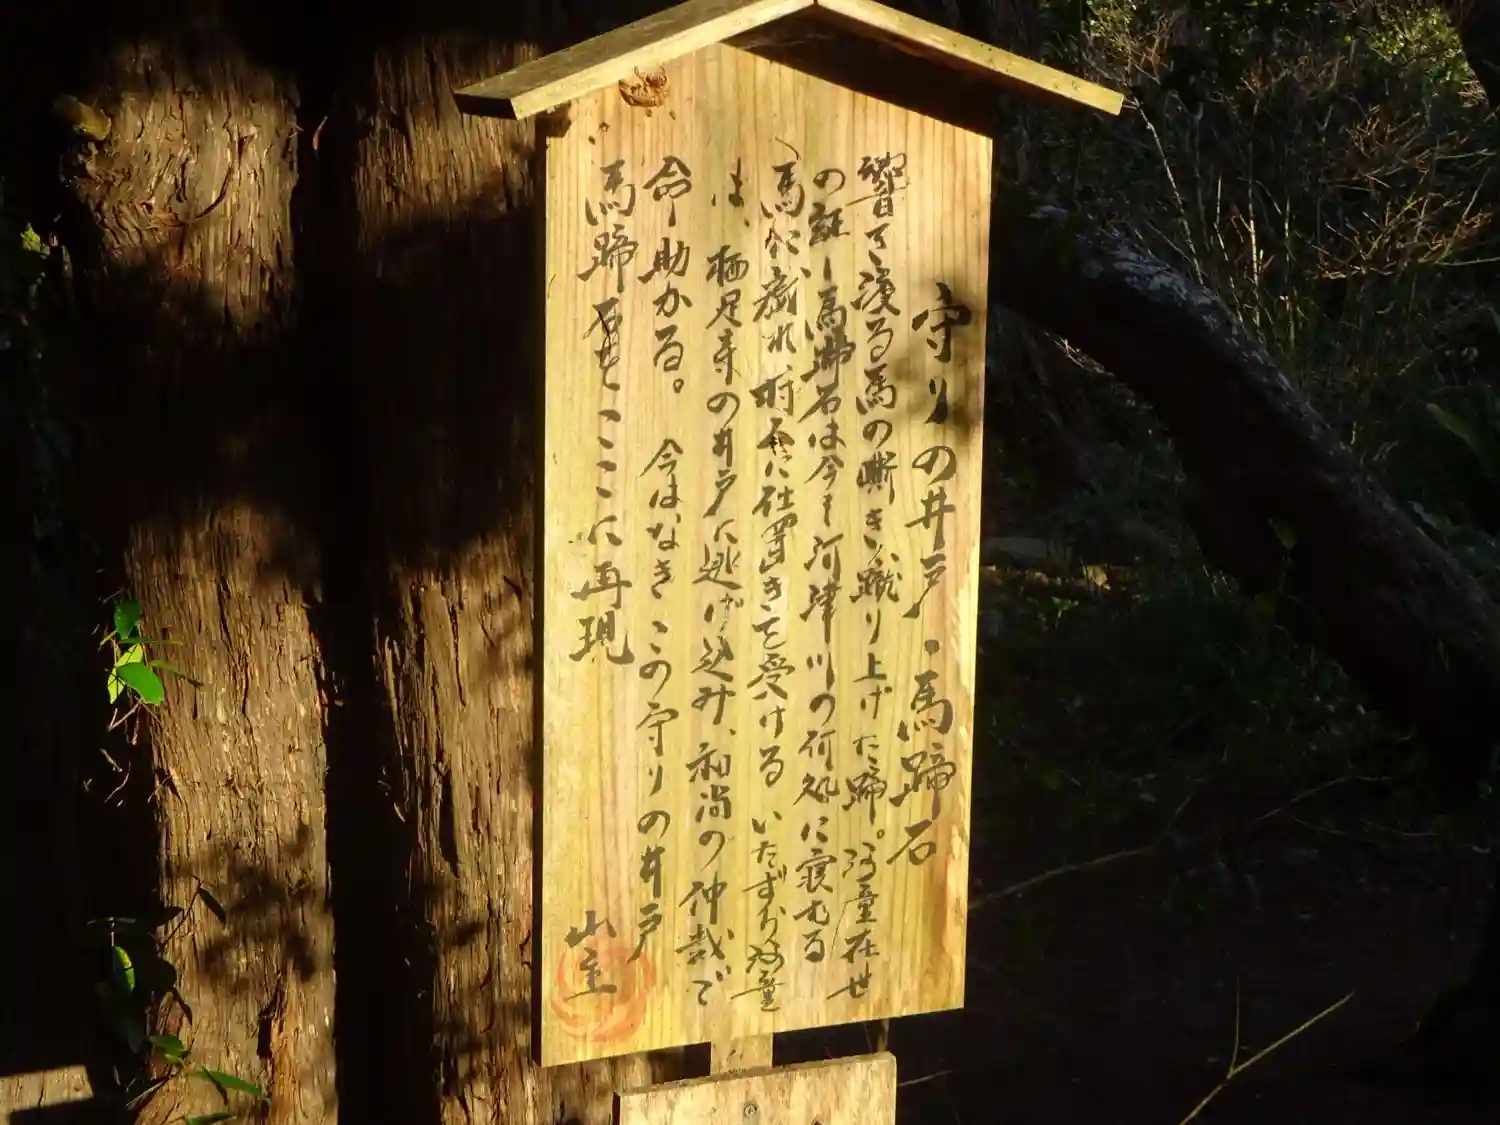 守りの井戸・馬蹄石
響き渡る馬の嘶き、蹴り上げた蹄。河童在世
の証し馬蹄石は今も河津川の何処に寝むる
馬に戯れ、村人に仕置きを受ける いたずら河童
は、栖足寺の井戸に逃げ込み、和尚の仲裁で
命助かる。 今はなきこの守りの井戸
馬蹄石をここに再現
山主